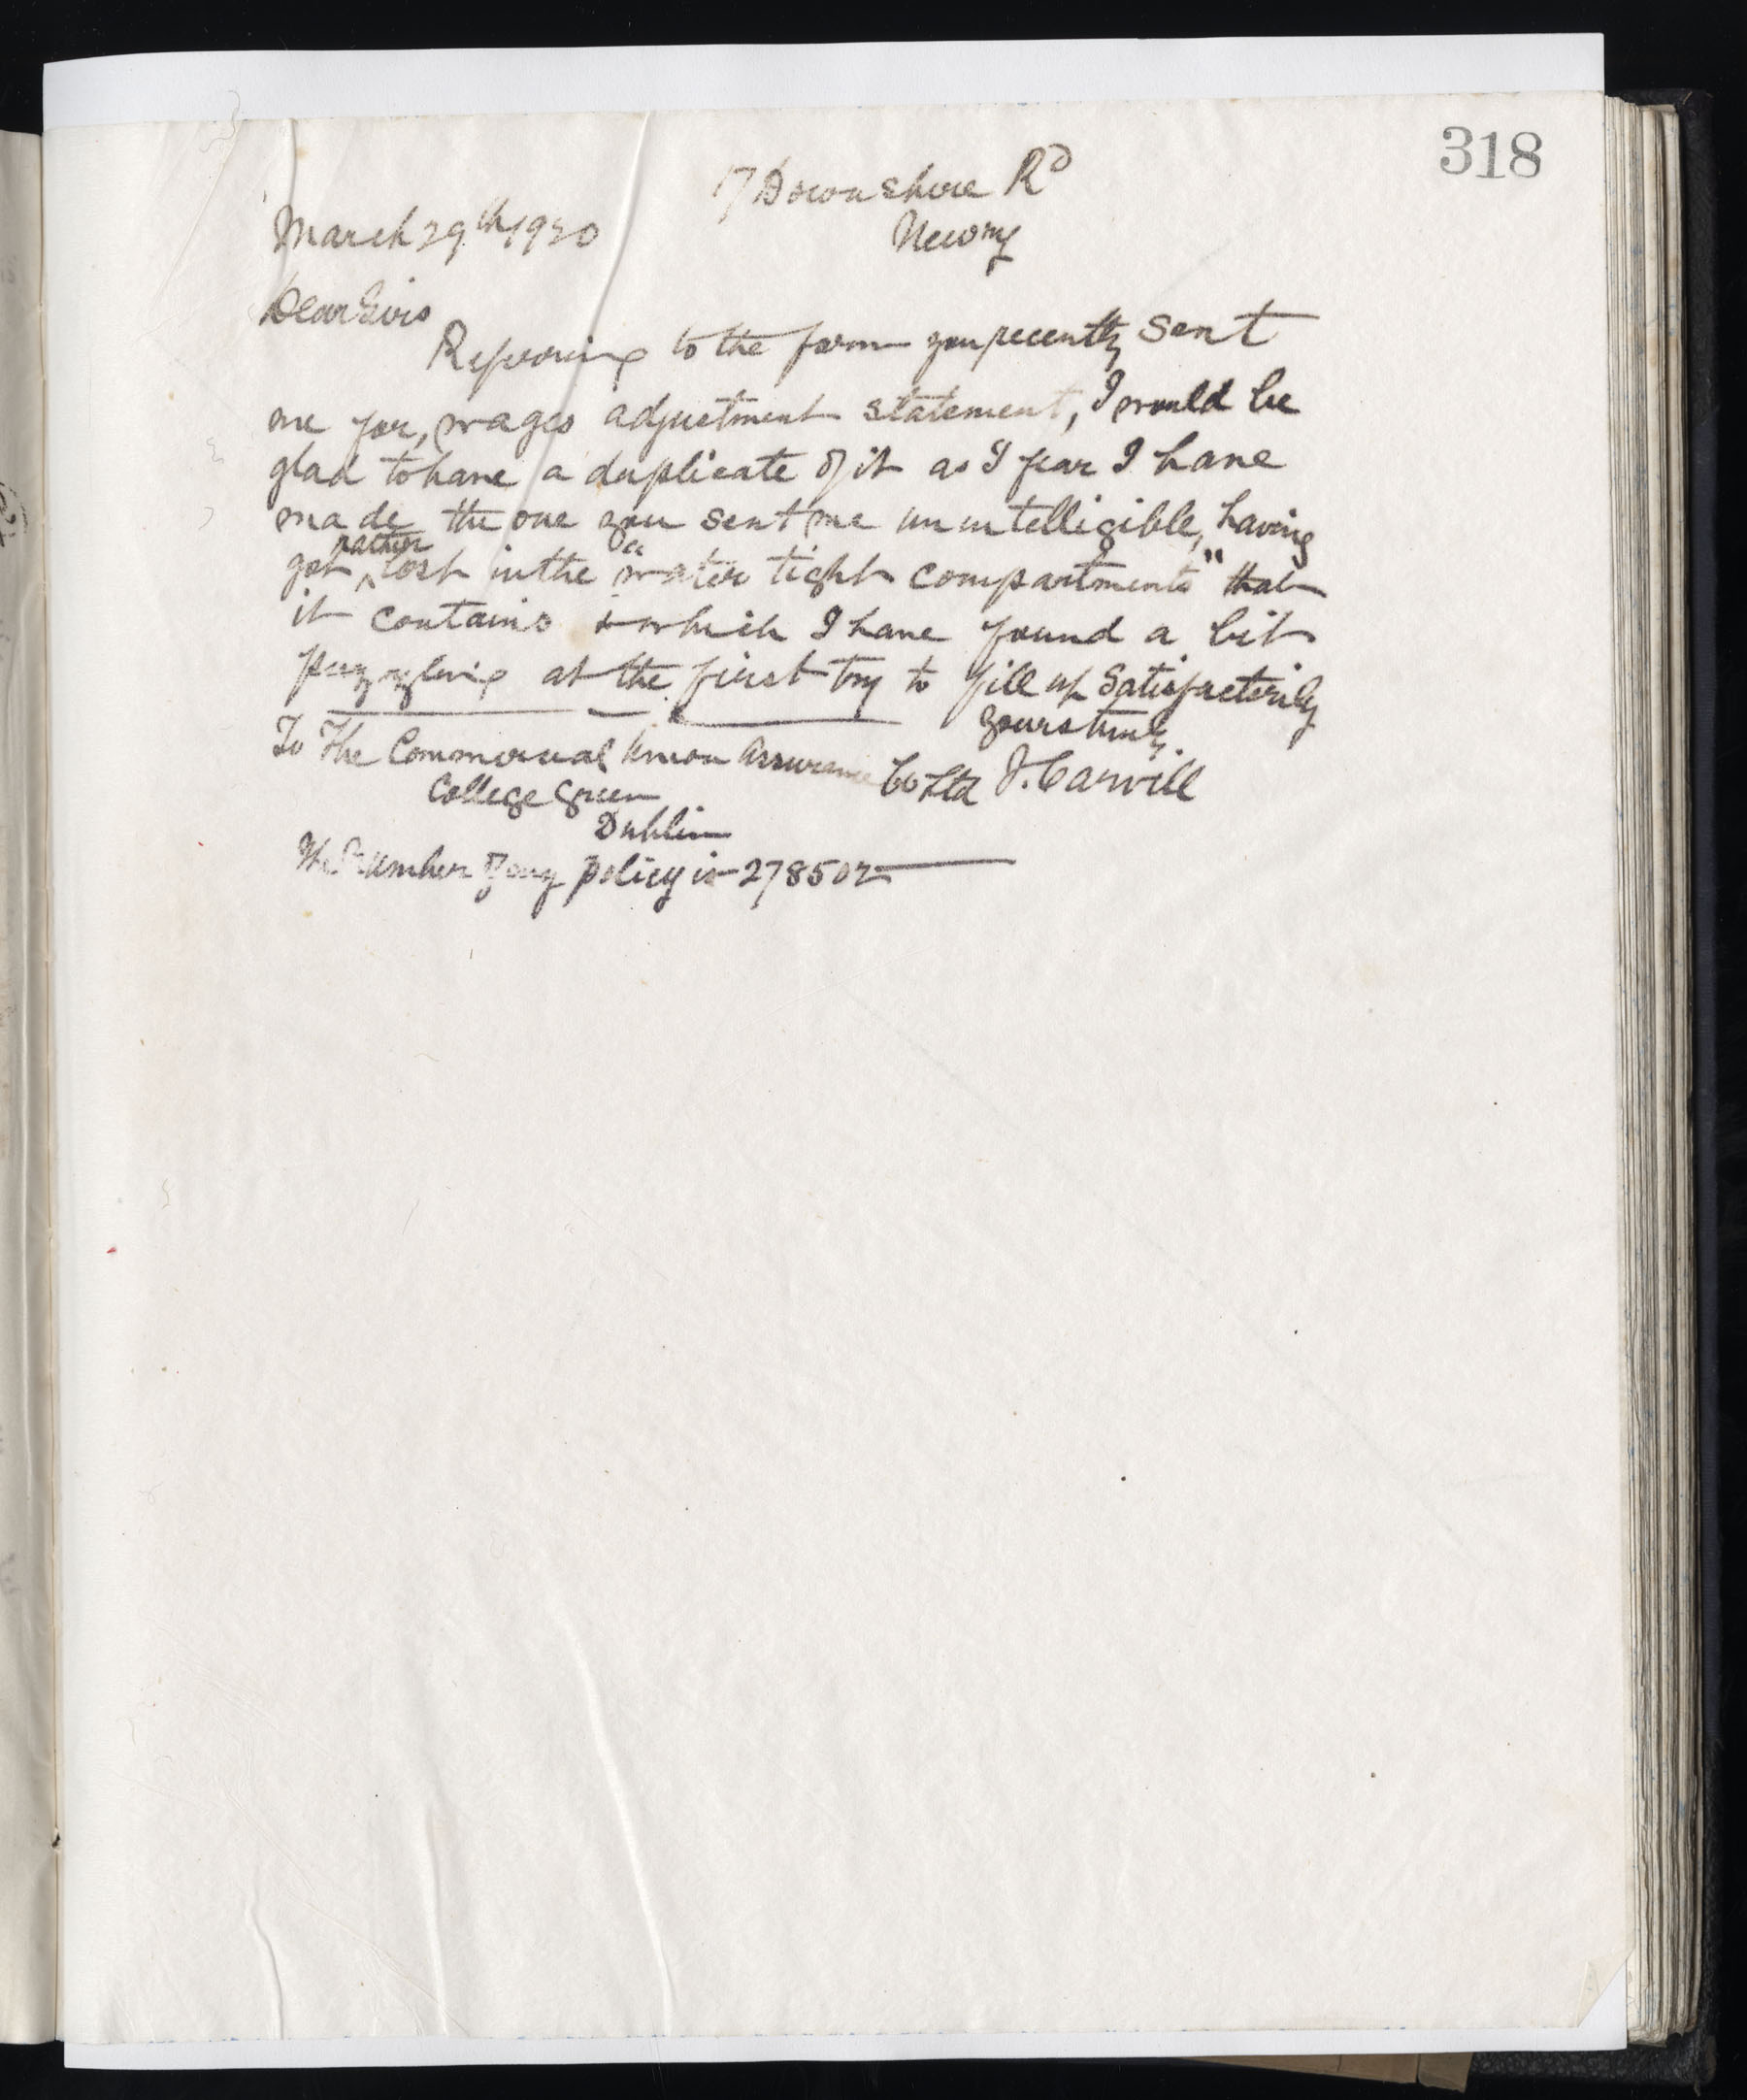 318
17 Downshire Rd
March 29th 1920
Newry
Dear Sirs
Referring to the form you recently sent
me for, wages adjustment statement, I would be
glad to have a duplicate of it as I fear I have
made the one you sent me unintelligible, having
got rather lost in the "water tight compartments" that
it contains & which I have found a bit
puzzling at the first try to fill up satisfactorily
Yours truly
To The Commercial Union Assurance Co Ltd J. Carvill
College Green
Dublin
The Number of my policy is 278502